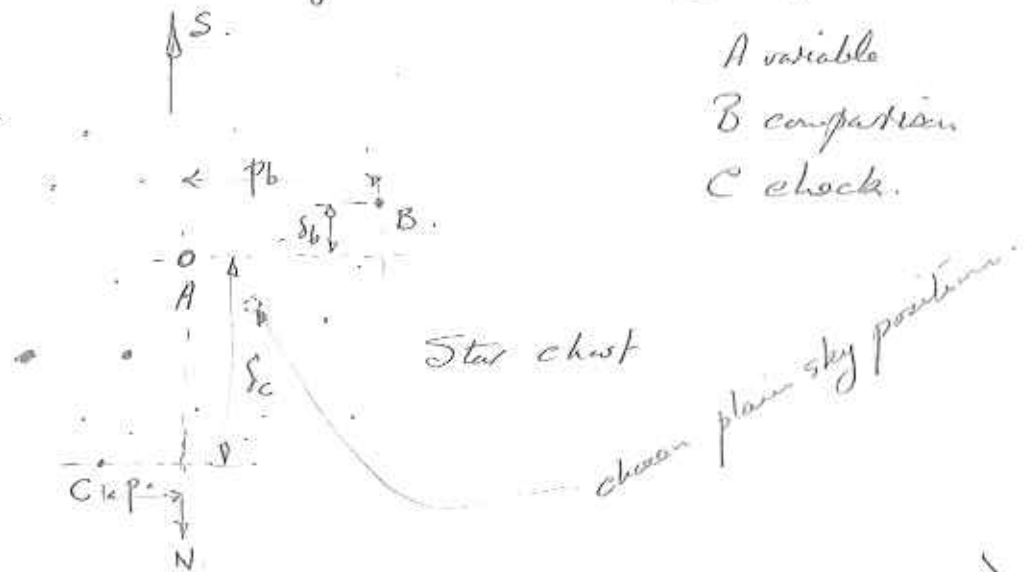 S.
A variable
B comparison
C check.
pb
δb
B.
A
Star chart
δc
chosen plain sky position.
C
p
N